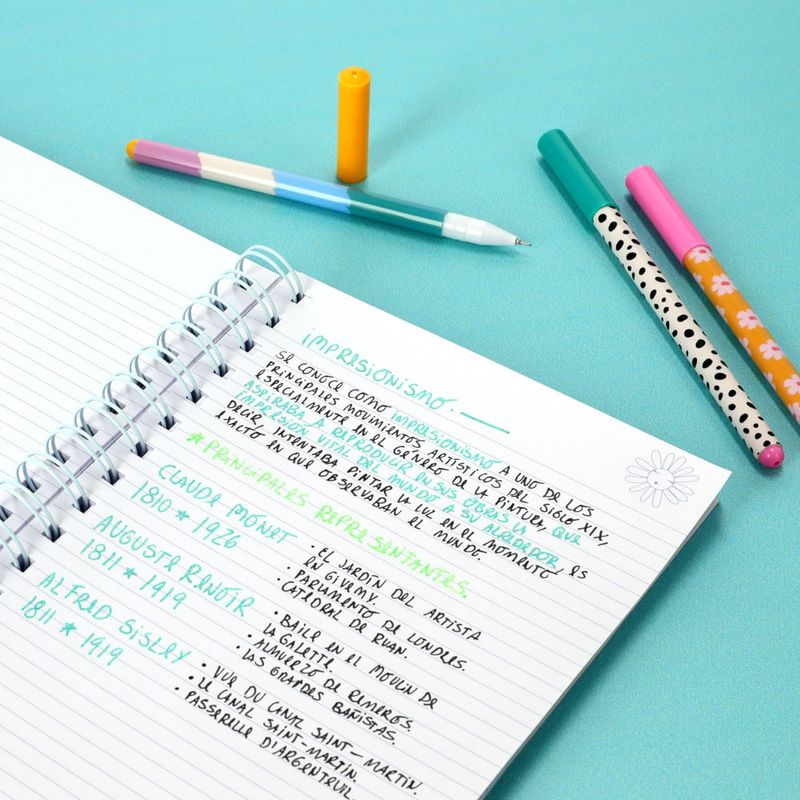 IMPRESIONISMO.
SE CONOCE COMO IMPRESIONISMO A UNO DE LOS
PRINCIPALES MOVIMIENTOS ARTÍSTICOS DEL SIGLO XIX,
ESPECIALMENTE EN EL GÉNERO DE LA PINTURA, QUE
ASPIRABA A REPRODUCIR EN SUS OBRAS LA
IMPRESIÓN VITAL DEL MUNDO A SU ALREDEDOR, ES
DECIR, INTENTABA PINTAR LA LUZ EN EL MOMENTO
EXACTO EN QUE OBSERVABAN EL MUNDO.
★PRINCIPALES REPRESENTANTES.
CLAUDE MONET
1810 ★ 1926
• EL JARDÍN DEL ARTISTA
EN GIVERNY.
• PARLAMENTO DE LONDRES.
• CATEDRAL DE RUAN.
AUGUSTE RENOIR
1811 ★ 1919
• BAILE EN EL MOULIN DE
LA GALETTE.
• ALMUERZO DE REMEROS.
• LAS GRANDES BAÑISTAS.
ALFRED SISLEY
1811 ★ 1919
• VUE DU CANAL SAINT-MARTIN.
• LE CANAL SAINT-MARTIN.
• PASSERELLE D'ARGENTEUIL.